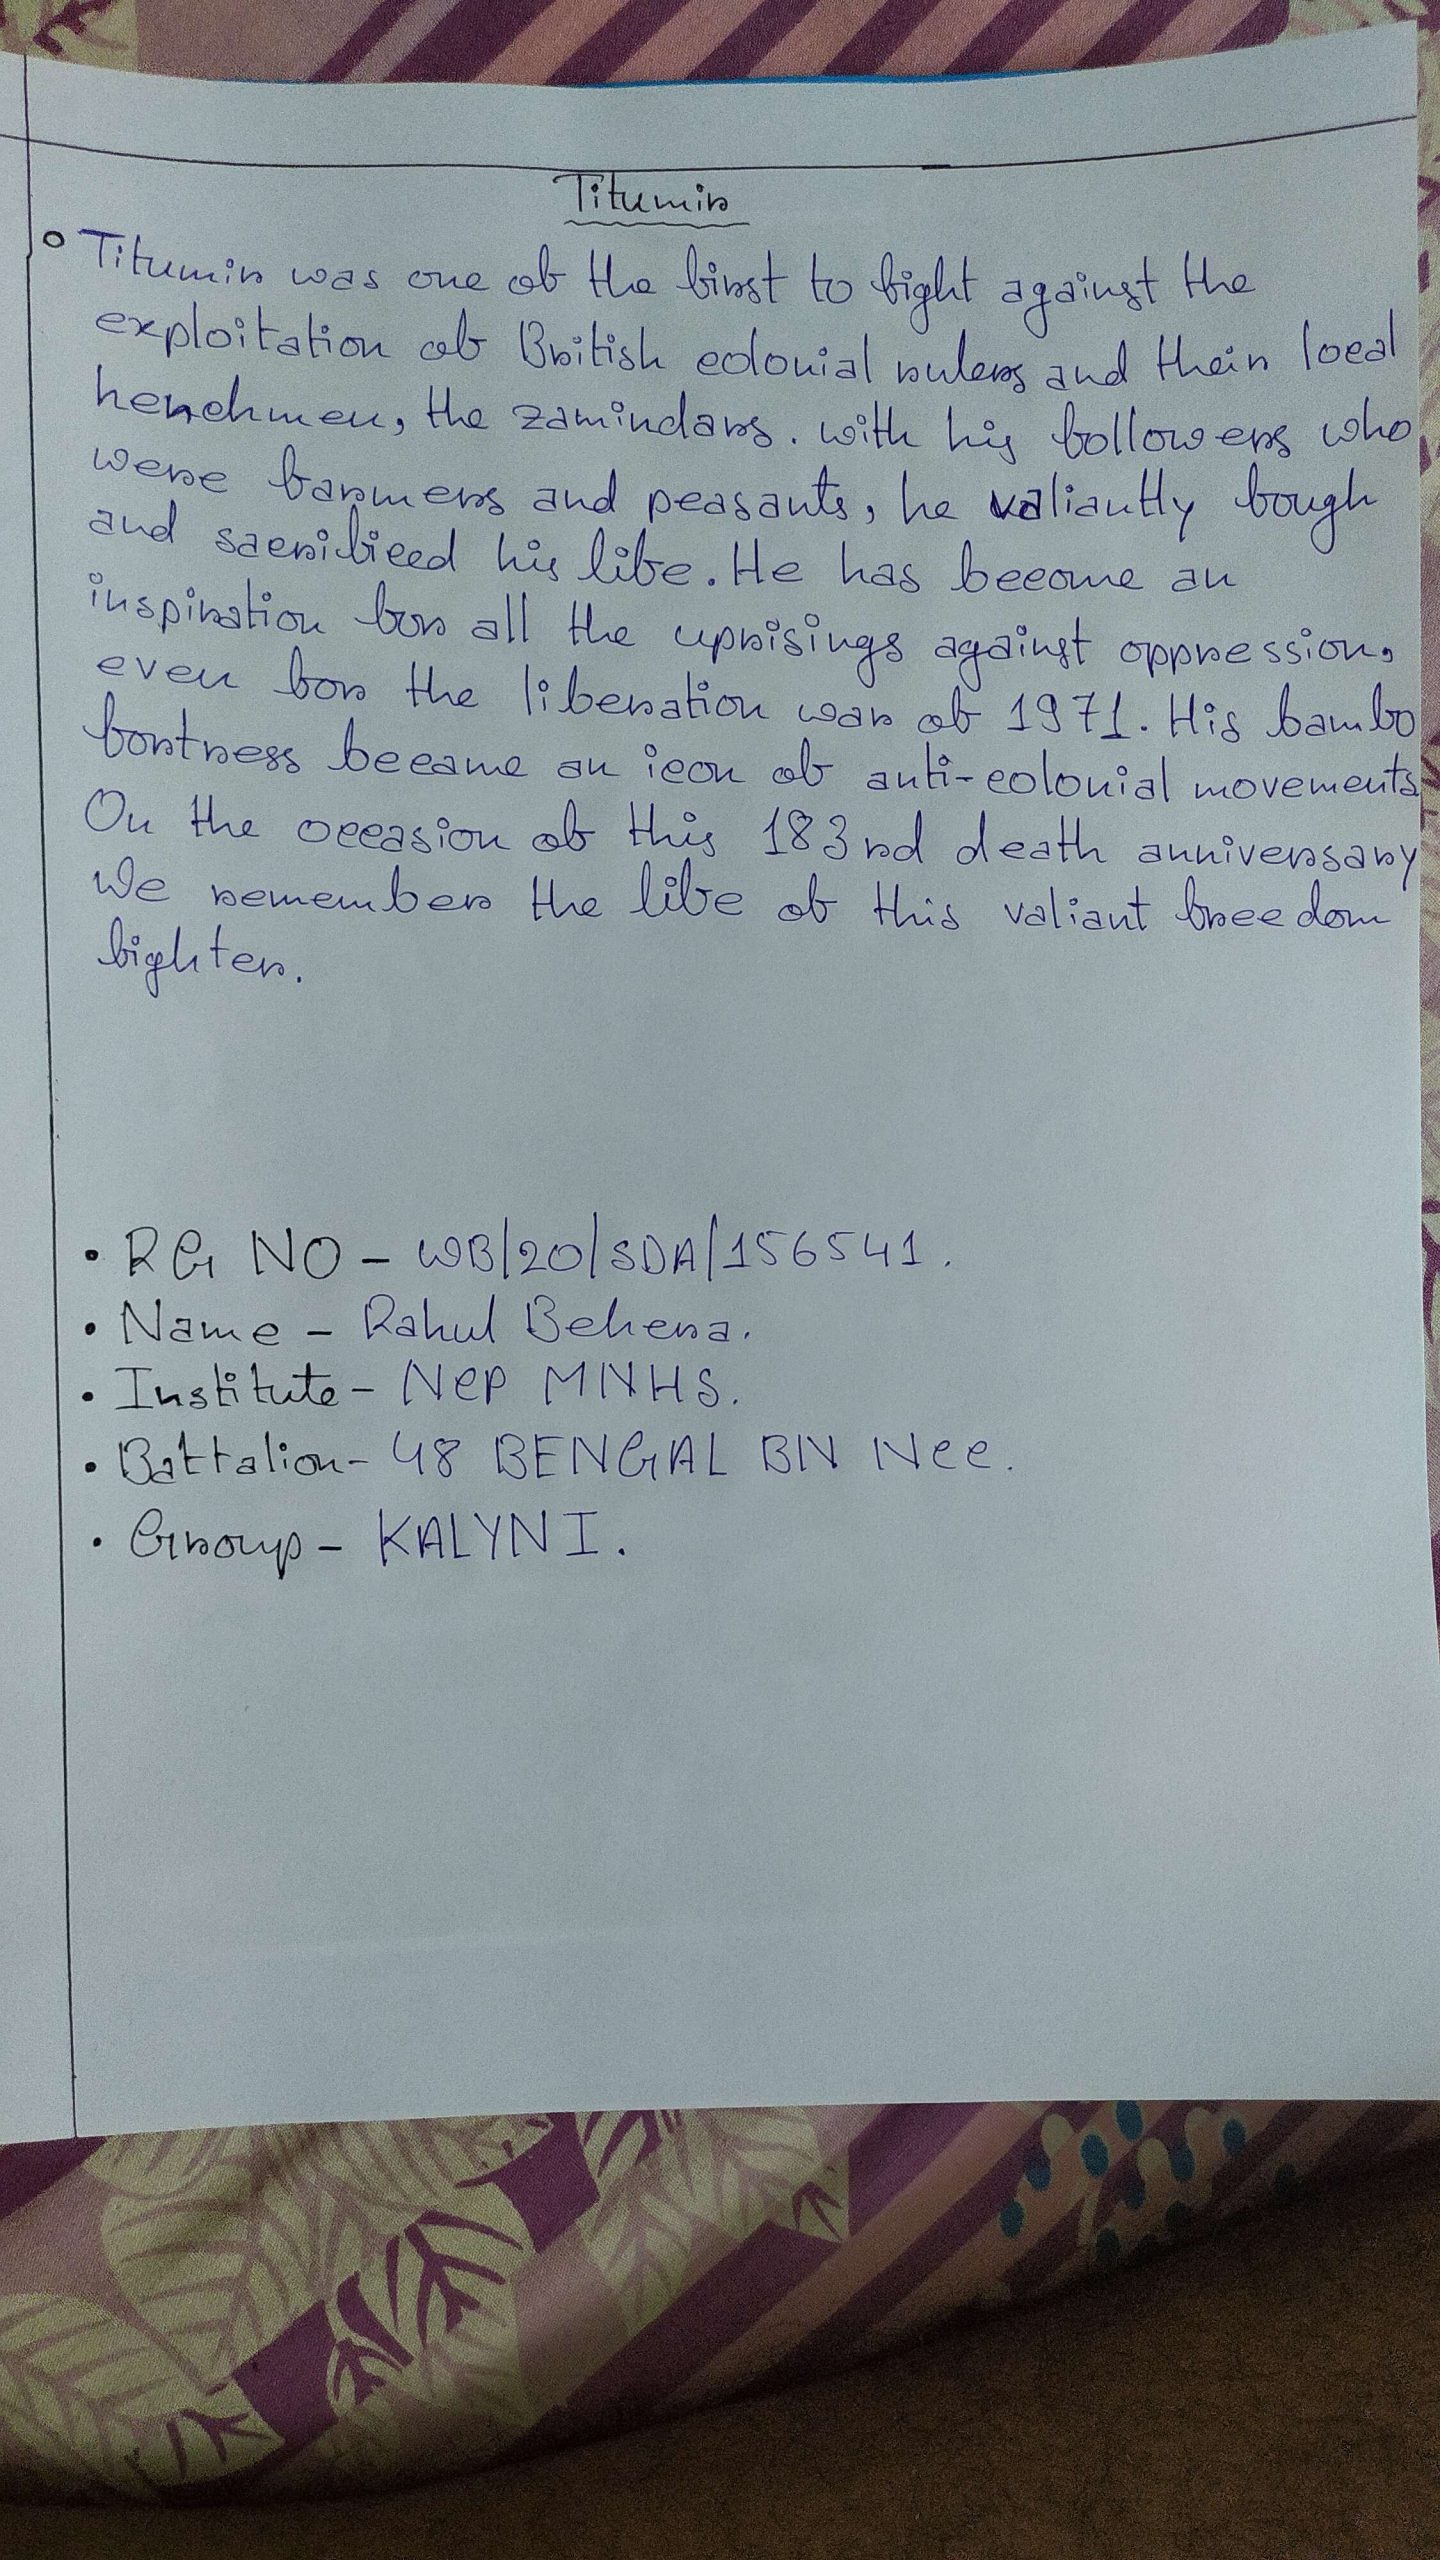 Titumir
Titumir was one of the first to fight against the
exploitation of British colonial rulers and their local
henchmen, the zamindars. with his followers who
were farmers and peasants, he valiantly fough
and sacrificed his life. He has become an
inspiration for all the uprisings against oppression,
even for the liberation war of 1971. His bambo
fortress became an icon of anti-colonial movements
On the occasion of this 183rd death anniversary
We remember the life of this valiant freedom
fighter.
• RG NO - WB/20/SDA/156541.
• Name - Rahul Behera.
• Institute - Ncp MNHS.
• Battalion - 48 BENGAL BN Ncc.
• Group - KALYNI.